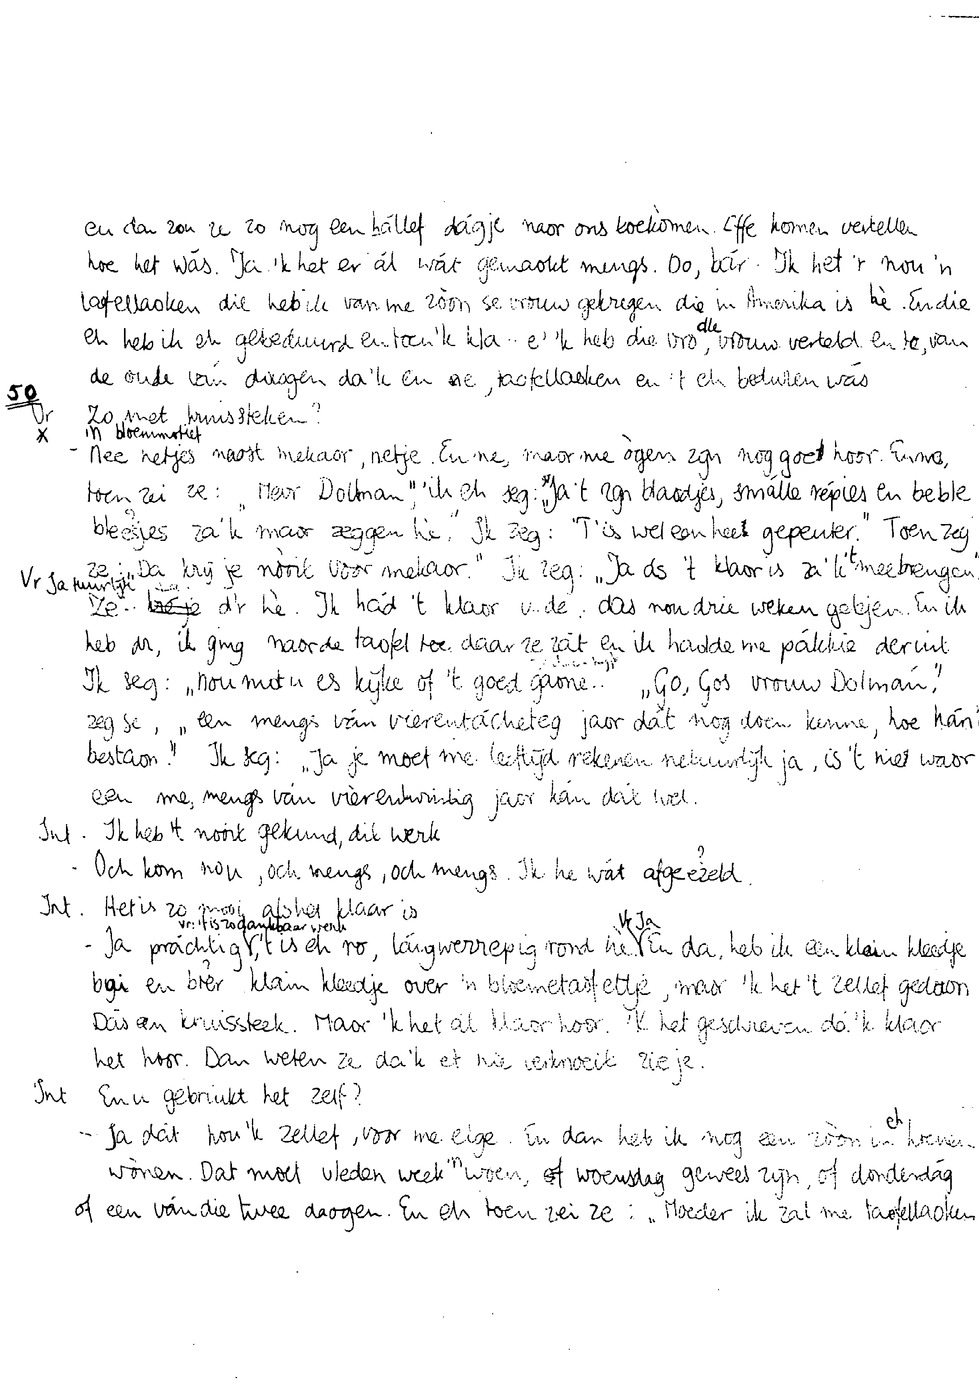 en dan zou ze zo nog een hállef dágje naor ons toekòmen. Effe komen vertellen
hoe het wás. Ja 'k het er ál wát gemaokt mengs. Oo, bár. Ik het 'r nou 'n
tafellaoken die heb ik van me zòòn se vrouw gekregen die in Amerika is hè. En die
eh heb ik eh geborduurd en toen 'k kla.. e' 'k heb die vro, die vrouw verteld en to, van
de oude ván daogen da'k en ne, taofellaoken en 't eh
50
Vr Zo met kruissteken?
X in bloemmotief
- Nee netjes naost mekaor, netje. En ne, maor me ògen zijn nog goed hoor. En no,
toen zei ze: "Mevr Dolman", 'ik eh seg: "Ja 't zijn blaodjes, smálle répies en beble
bleesjes za'k maor zeggen hè." Ik zeg: "T'is wel een heel gepeuter." Toen zeg
ze: "Da krij je nòòit voor mekaor." Ik zeg: "Ja ás 't klaor is zá'k 't meebrengen.
Vr Ja tuurlijk
Ze.. d'r hè. Ik hád 't klaor v. de. das nou drie weken gelejen. En ik
heb dr, ik ging naor de taofel toe daar ze zát en ik hadde me pákkie deruit
Ik seg: "nou mut u es kijke of 't goed gaone.." "Go, Gos vrouw Dolmán",
zeg se, "een mengs ván vierentácheteg jaor dát nog doen kunne, hoe kán
bestaon." Ik seg: "Ja je moet me leeftijd rekenen netuurlijk ja, is 't niet waor
een me, mengs ván vierentwintig jaor kán dát wel.
Int. Ik heb 't nòòit gekund, dit werk
- Och kom nou, och mengs, och mengs. Ik he wát afgeëzeld.
Int. Het is zo mooi als het klaar is
vr: 't is zo dankbaar werk Vr Ja
- Ja práchtig, 't is eh ro, lángwerrepig rond hè. En da, heb ik een klein kleedje
bgi en bier klein kleedje over 'n bloemetaofeltje, maor 'k het 't zellef gedaon
Dás en kruissteek. Maor 'k het ál klaor hoor. 'K het geschreven dá'k klaor
het hoor. Dan weten ze da'k et nie verknoeit zie je.
Int En u gebruikt het zelf?
- Ja dát hou'k zellef, voor me eige. En dan heb ik nog een zòòn in eh
wònen. Dat moet vleden week 'n woen, of woensdag gewees zijn, of donderdág
of een ván die twee daogen. En eh toen zei ze: "Moeder ik zal me taofellaoken